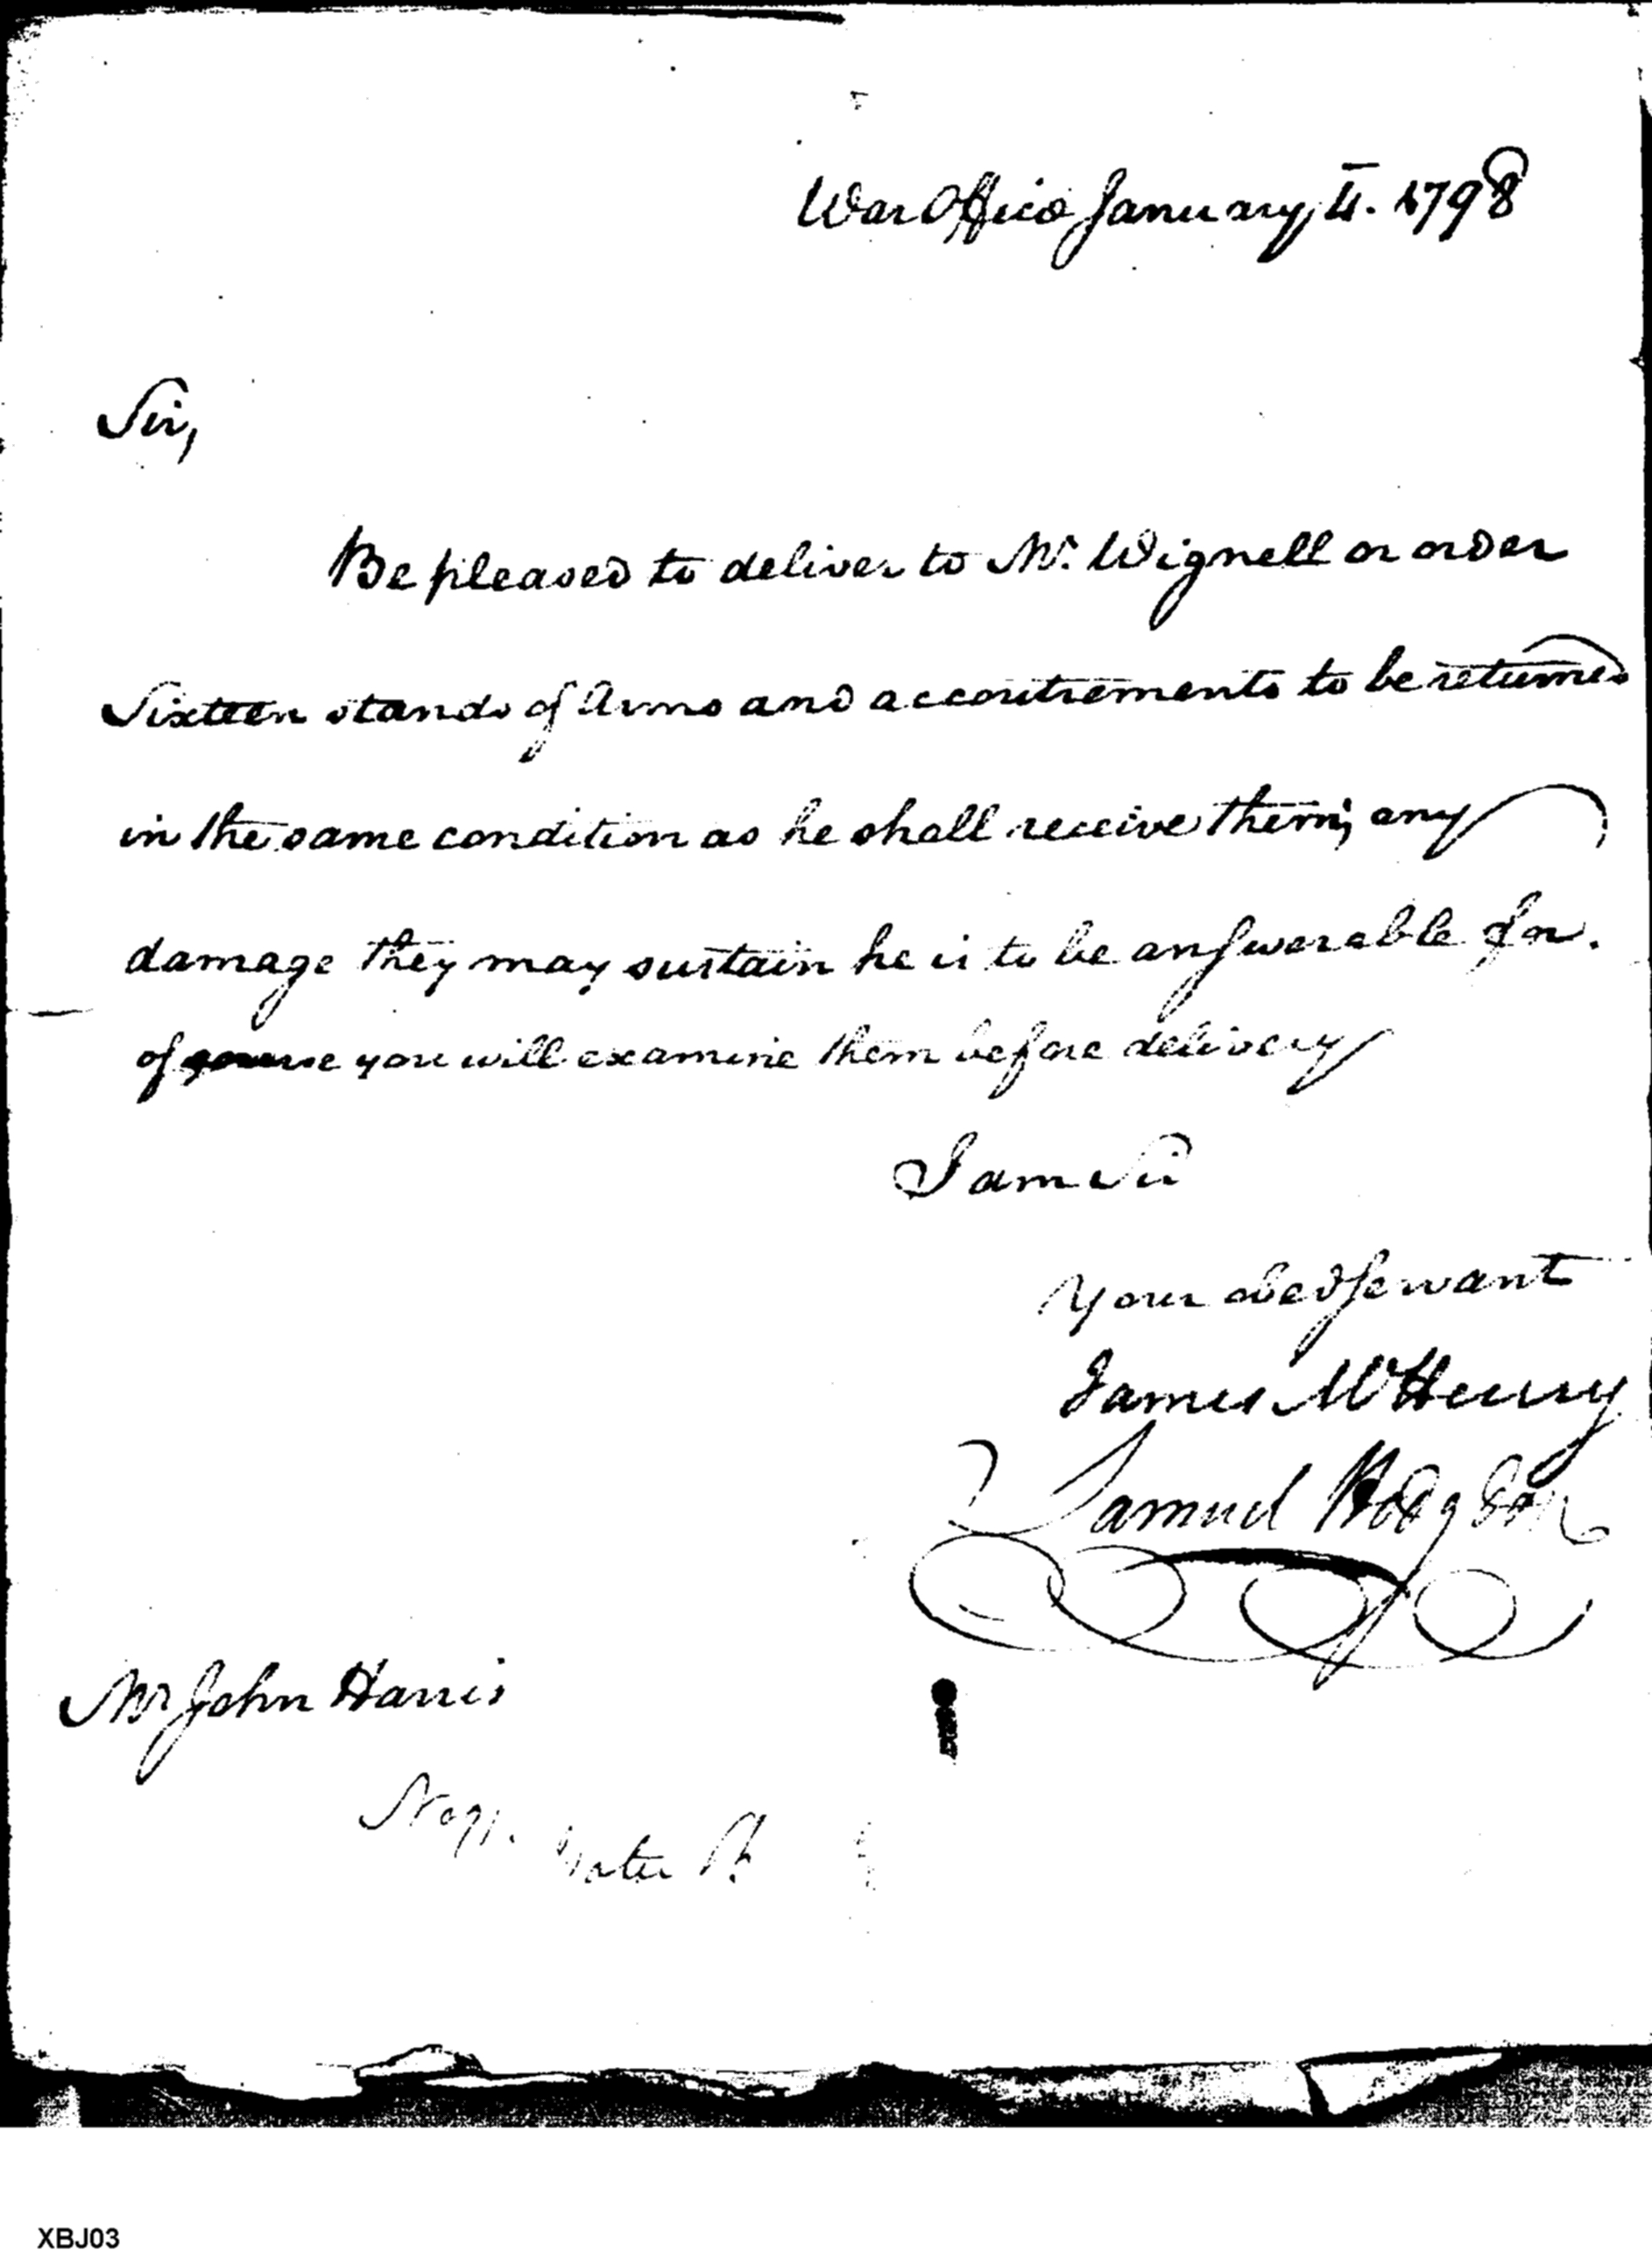 War Office January 4. 1798
Sir,
Be pleased to deliver to Mr. Wignell or order
Sixteen stands of Arms and accoutrements to be returned
in the same condition as he shall receive them; any
damage they may sustain he is to be answerable for.
of course you will examine them before delivery
I am Sir
Your obed Servant
James McHenry
Samuel Hodgdon
Mr John Harris
XBJ03